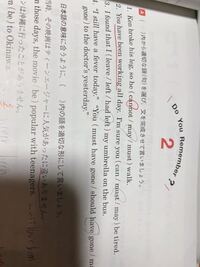 Do You Remember?
2
( )内から適切な語(句)を選び,文を完成させて言いましょう。
1. Ken broke his leg, so he ( cannot / may / must ) walk.
2. You have been working all day. I'm sure you ( can / must / may ) be tired.
3. I found that I ( leave / left / had left ) my umbrella on the bus.
4. "I still have a fever today." "You ( must have gone / should have gone /
gone ) to the doctor's yesterday."
日本語の意味に合うように,( )内の語を適切な形にして言いましょう。
当時,その映画はティーンエージャーに人気があったに違いありません。
n those days, the movie ( be ) popular with teenagers
(be) to Okinawa